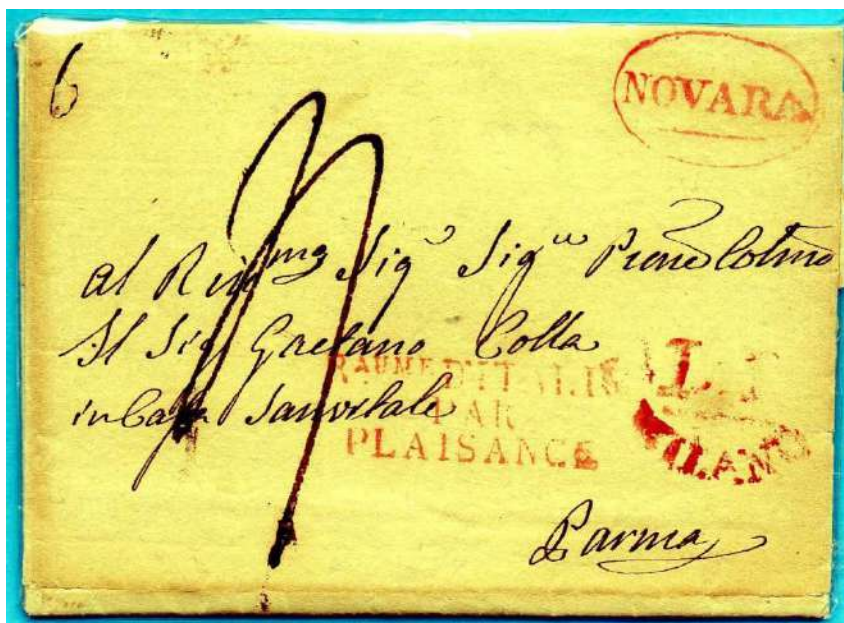 6
NOVARA
Al Rev.mo Sig.r Sig.re
Il Sig Gaetano Colla
in Casa Sanvitale
RAUME D'ITALIE
PAR
PLAISANCE
L.T
MILANO
Parma